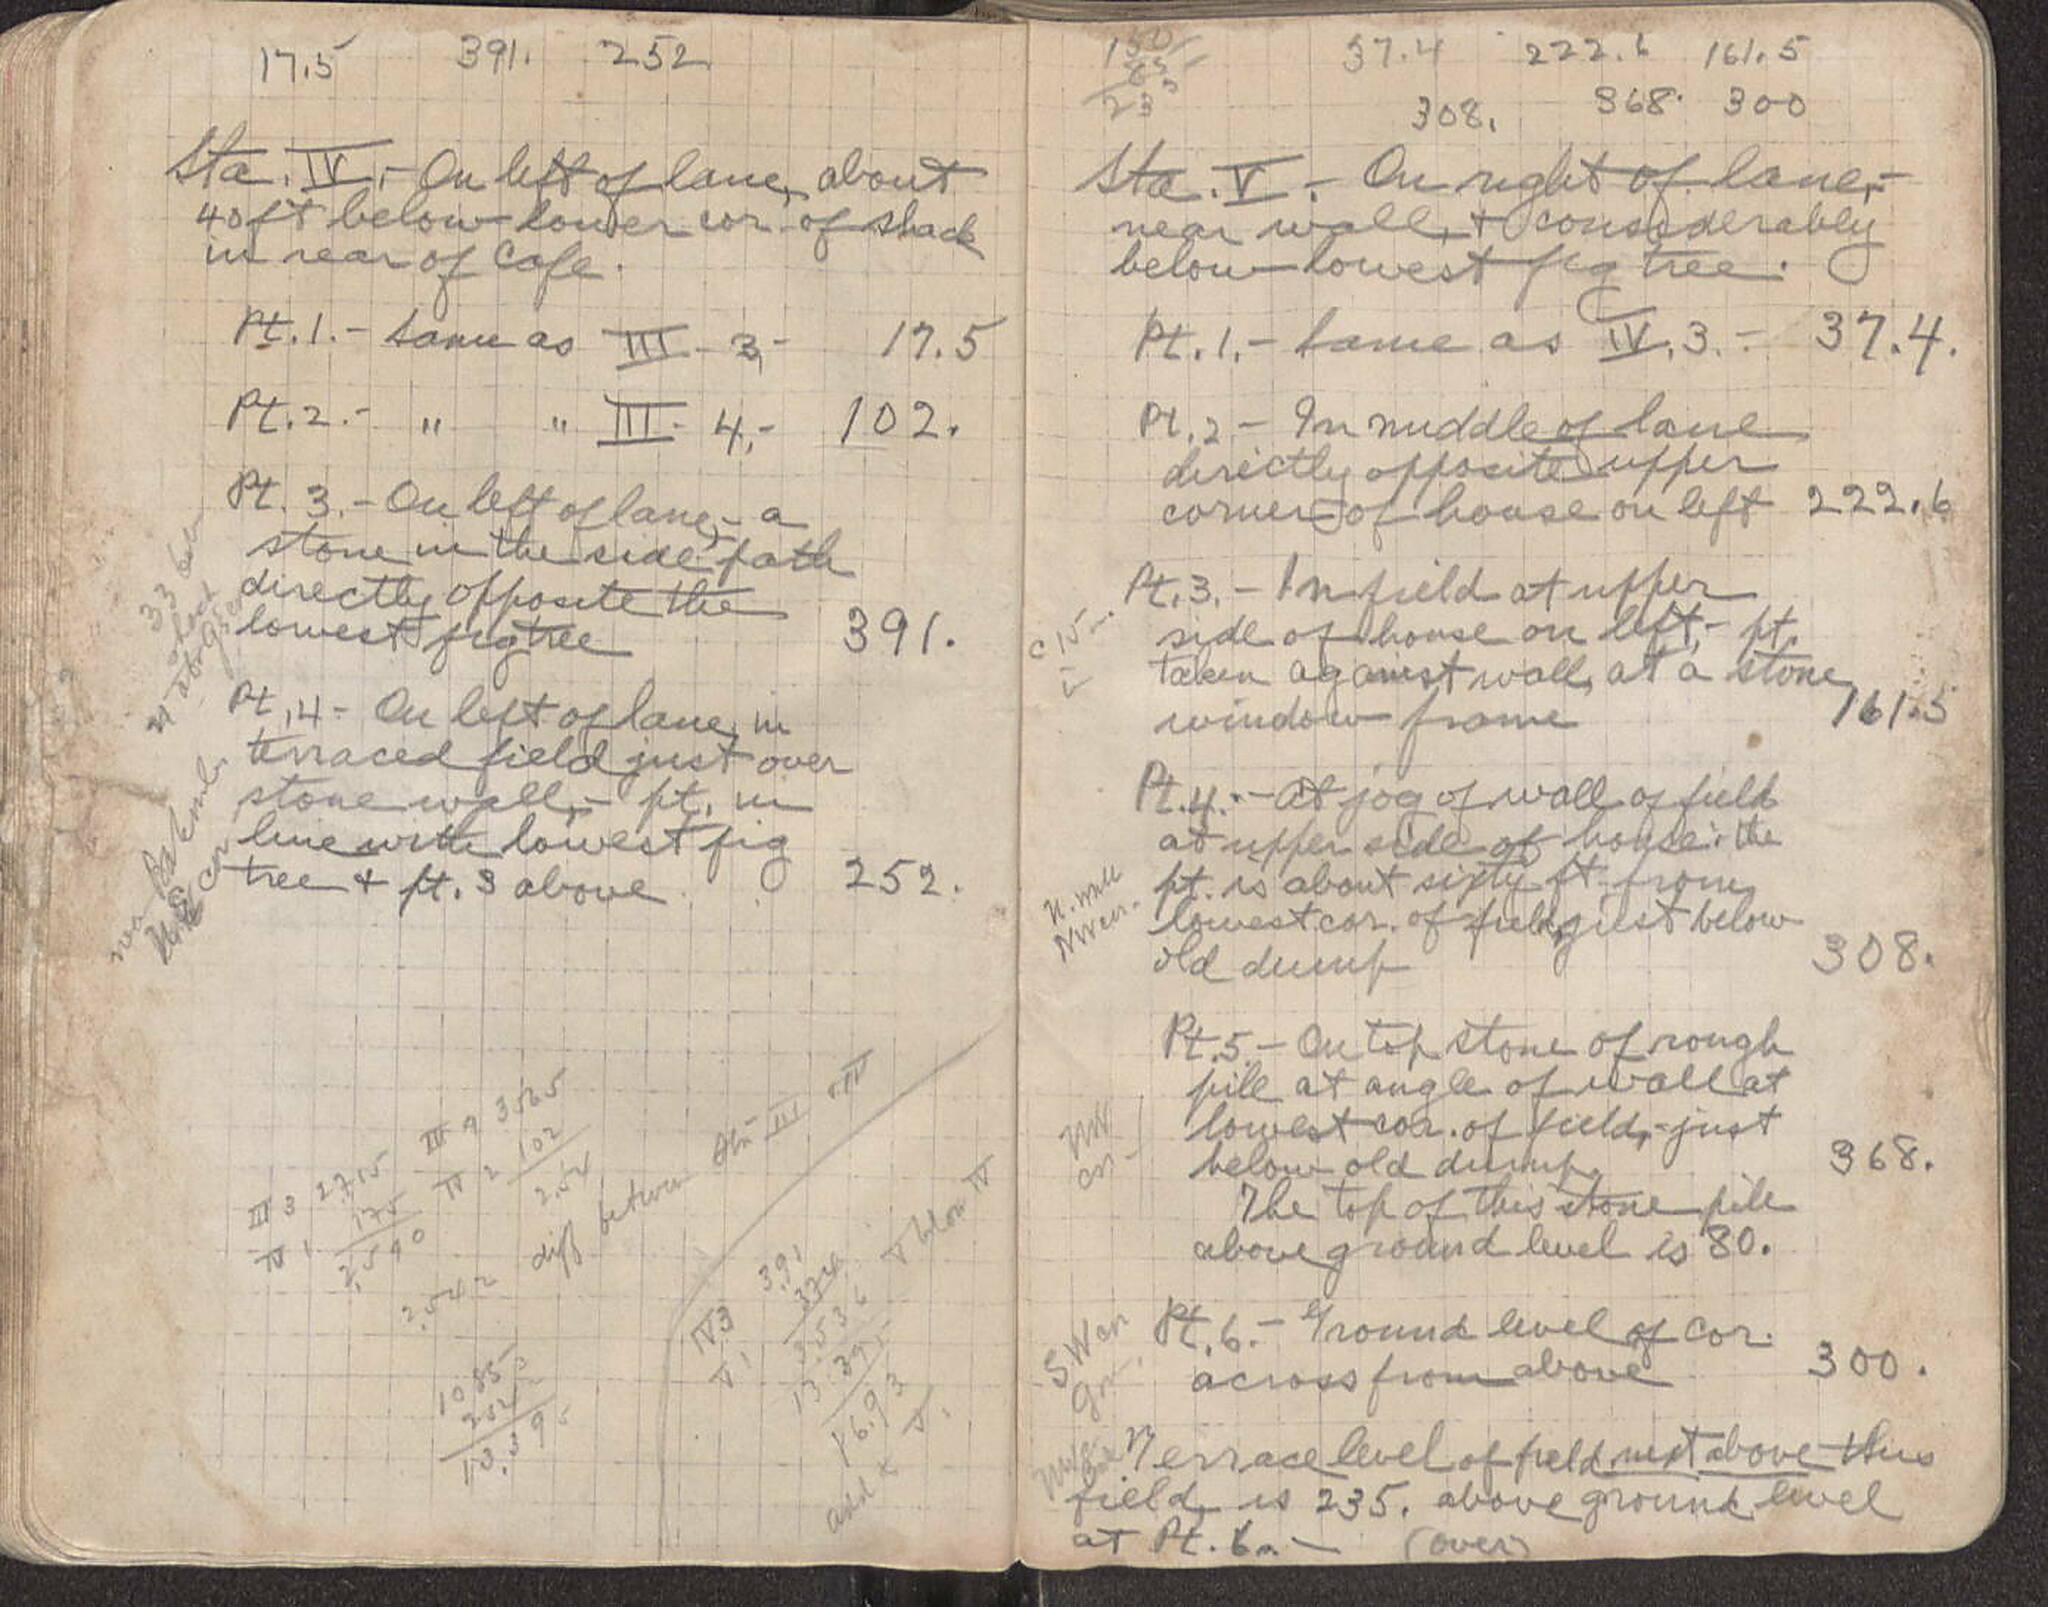 17.5 391. 252
Sta. IV.- On left of lane, about
40 ft below lower cor. of shack
in rear of Cafe.
Pt. 1.- Same as III - 3,- 17.5
Pt. 2.- " " III - 4,- 102.
Pt. 3.- On left of lane,- a
stone in the side path
directly opposite the
lowest fig tree 391.
Pt. 4- On left of lane, in
terraced field just over
stone wall,- pt. in
line with lowest fig
tree + pt. 3 above. 252.
III 3 2715
IV 1 175
2.540
III 4 3565
IV 2 102
2.54
2.542 diff between Stn III + IV
1085
254
13.395
IV 3 391
V 1 374
3.536 V below IV
13.395
16.93
add V
37.4 222.6 161.5
308. 368. 300
Sta. V.- On right of lane,-
near wall, + considerably
below lowest fig tree.
Pt. 1.- Same as IV. 3.- 37.4.
Pt. 2- In middle of lane
directly opposite upper
corner of house on left 222.6
Pt. 3.- In field at upper
side of house on left,- pt.
taken against wall, at a stone
window frame 161.5
Pt. 4.- At jog of wall of field
at upper side of house: the
pt. is about sixty ft. from
lowest cor. of field, just below
old dump 308.
N. wall
NW cn.
Pt. 5- On top stone of rough
pile at angle of wall at
lowest cor. of field,- just
below old dump. 368.
NW
cn-
The top of this stone pile
above ground level is 80.
Pt. 6.- Ground level of cor.
across from above 300.
S.W cn
gr.
Terrace level of field next above this
field, is 235. above ground level
at Pt. 6.- (over)